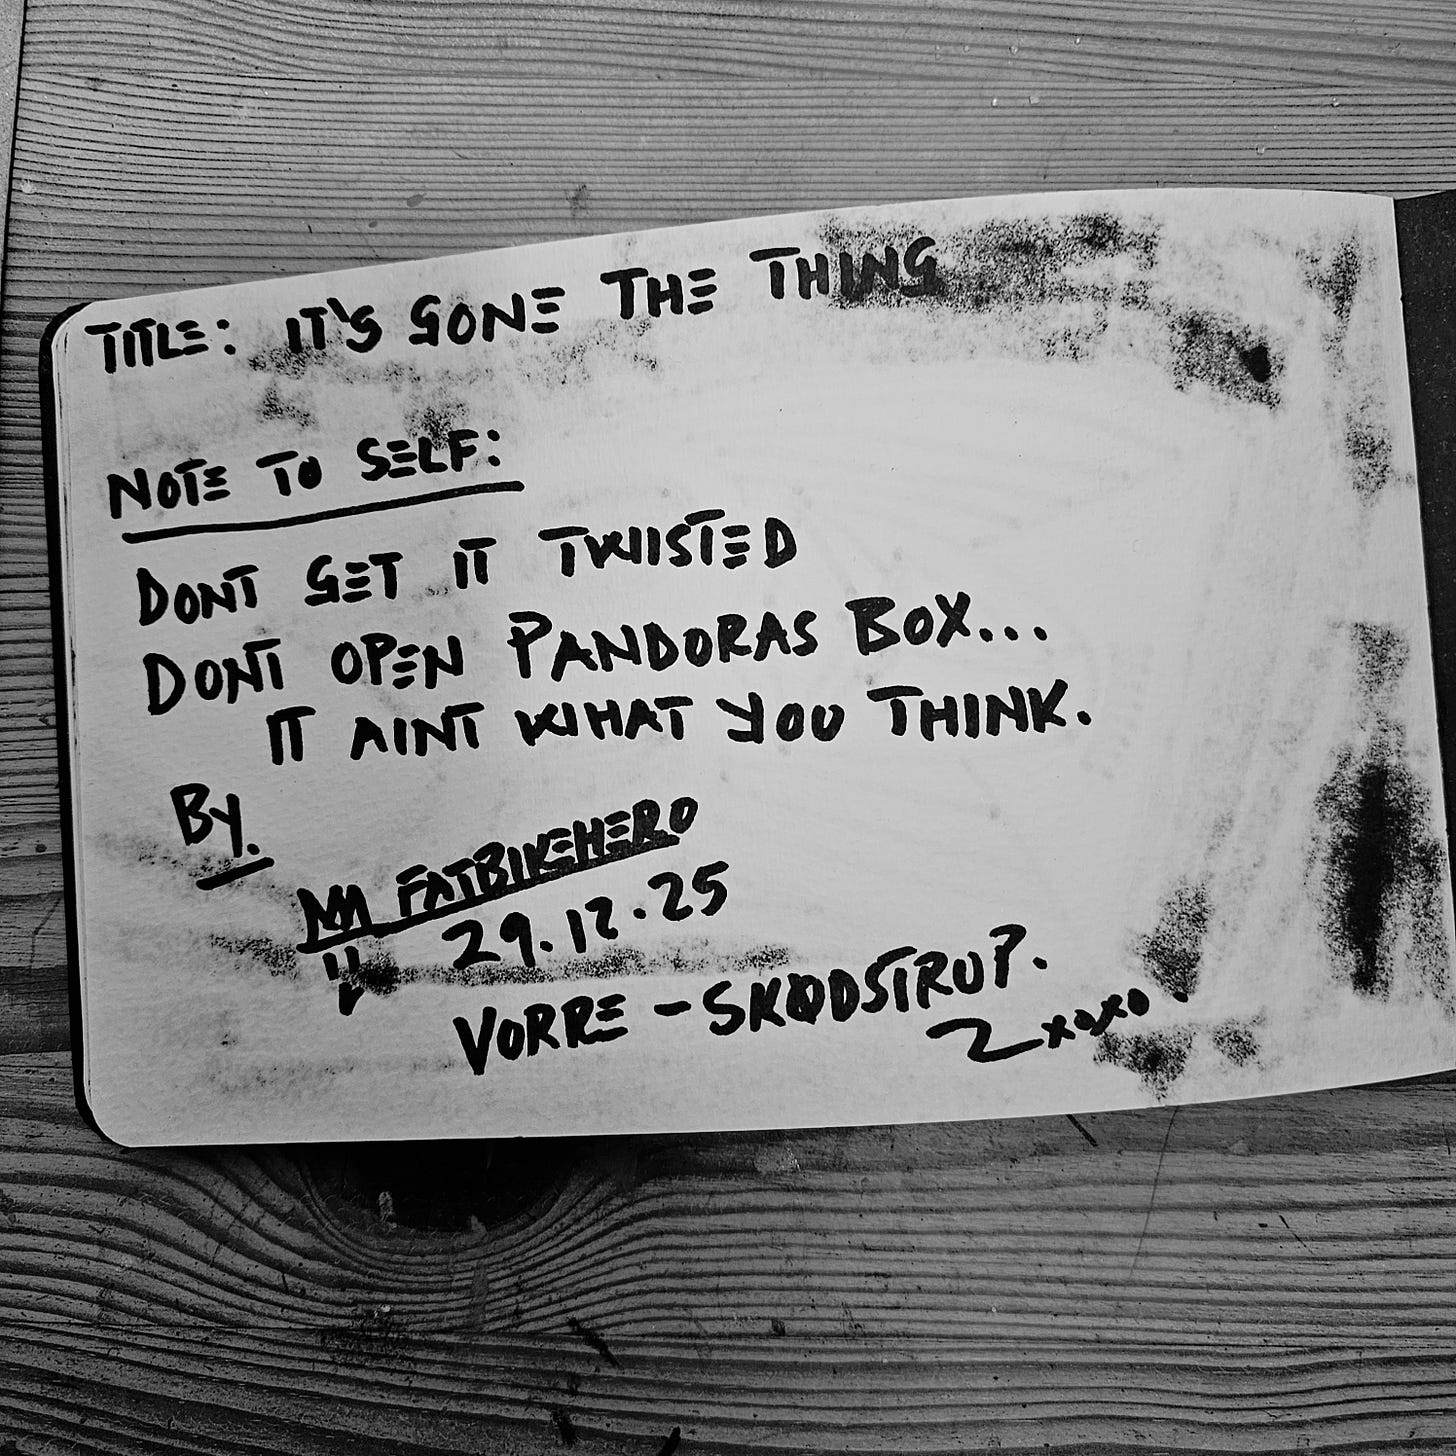 TITLE: IT'S GONE THE THING
NOTE TO SELF:
DONT GET IT TWIISTED
DONT OPEN PANDORAS BOX...
IT AINT WHAT YOU THINK.
By.
FATBIKEHERO
29.12.25
VORRE - SKØDSTRUP.
xoxo.